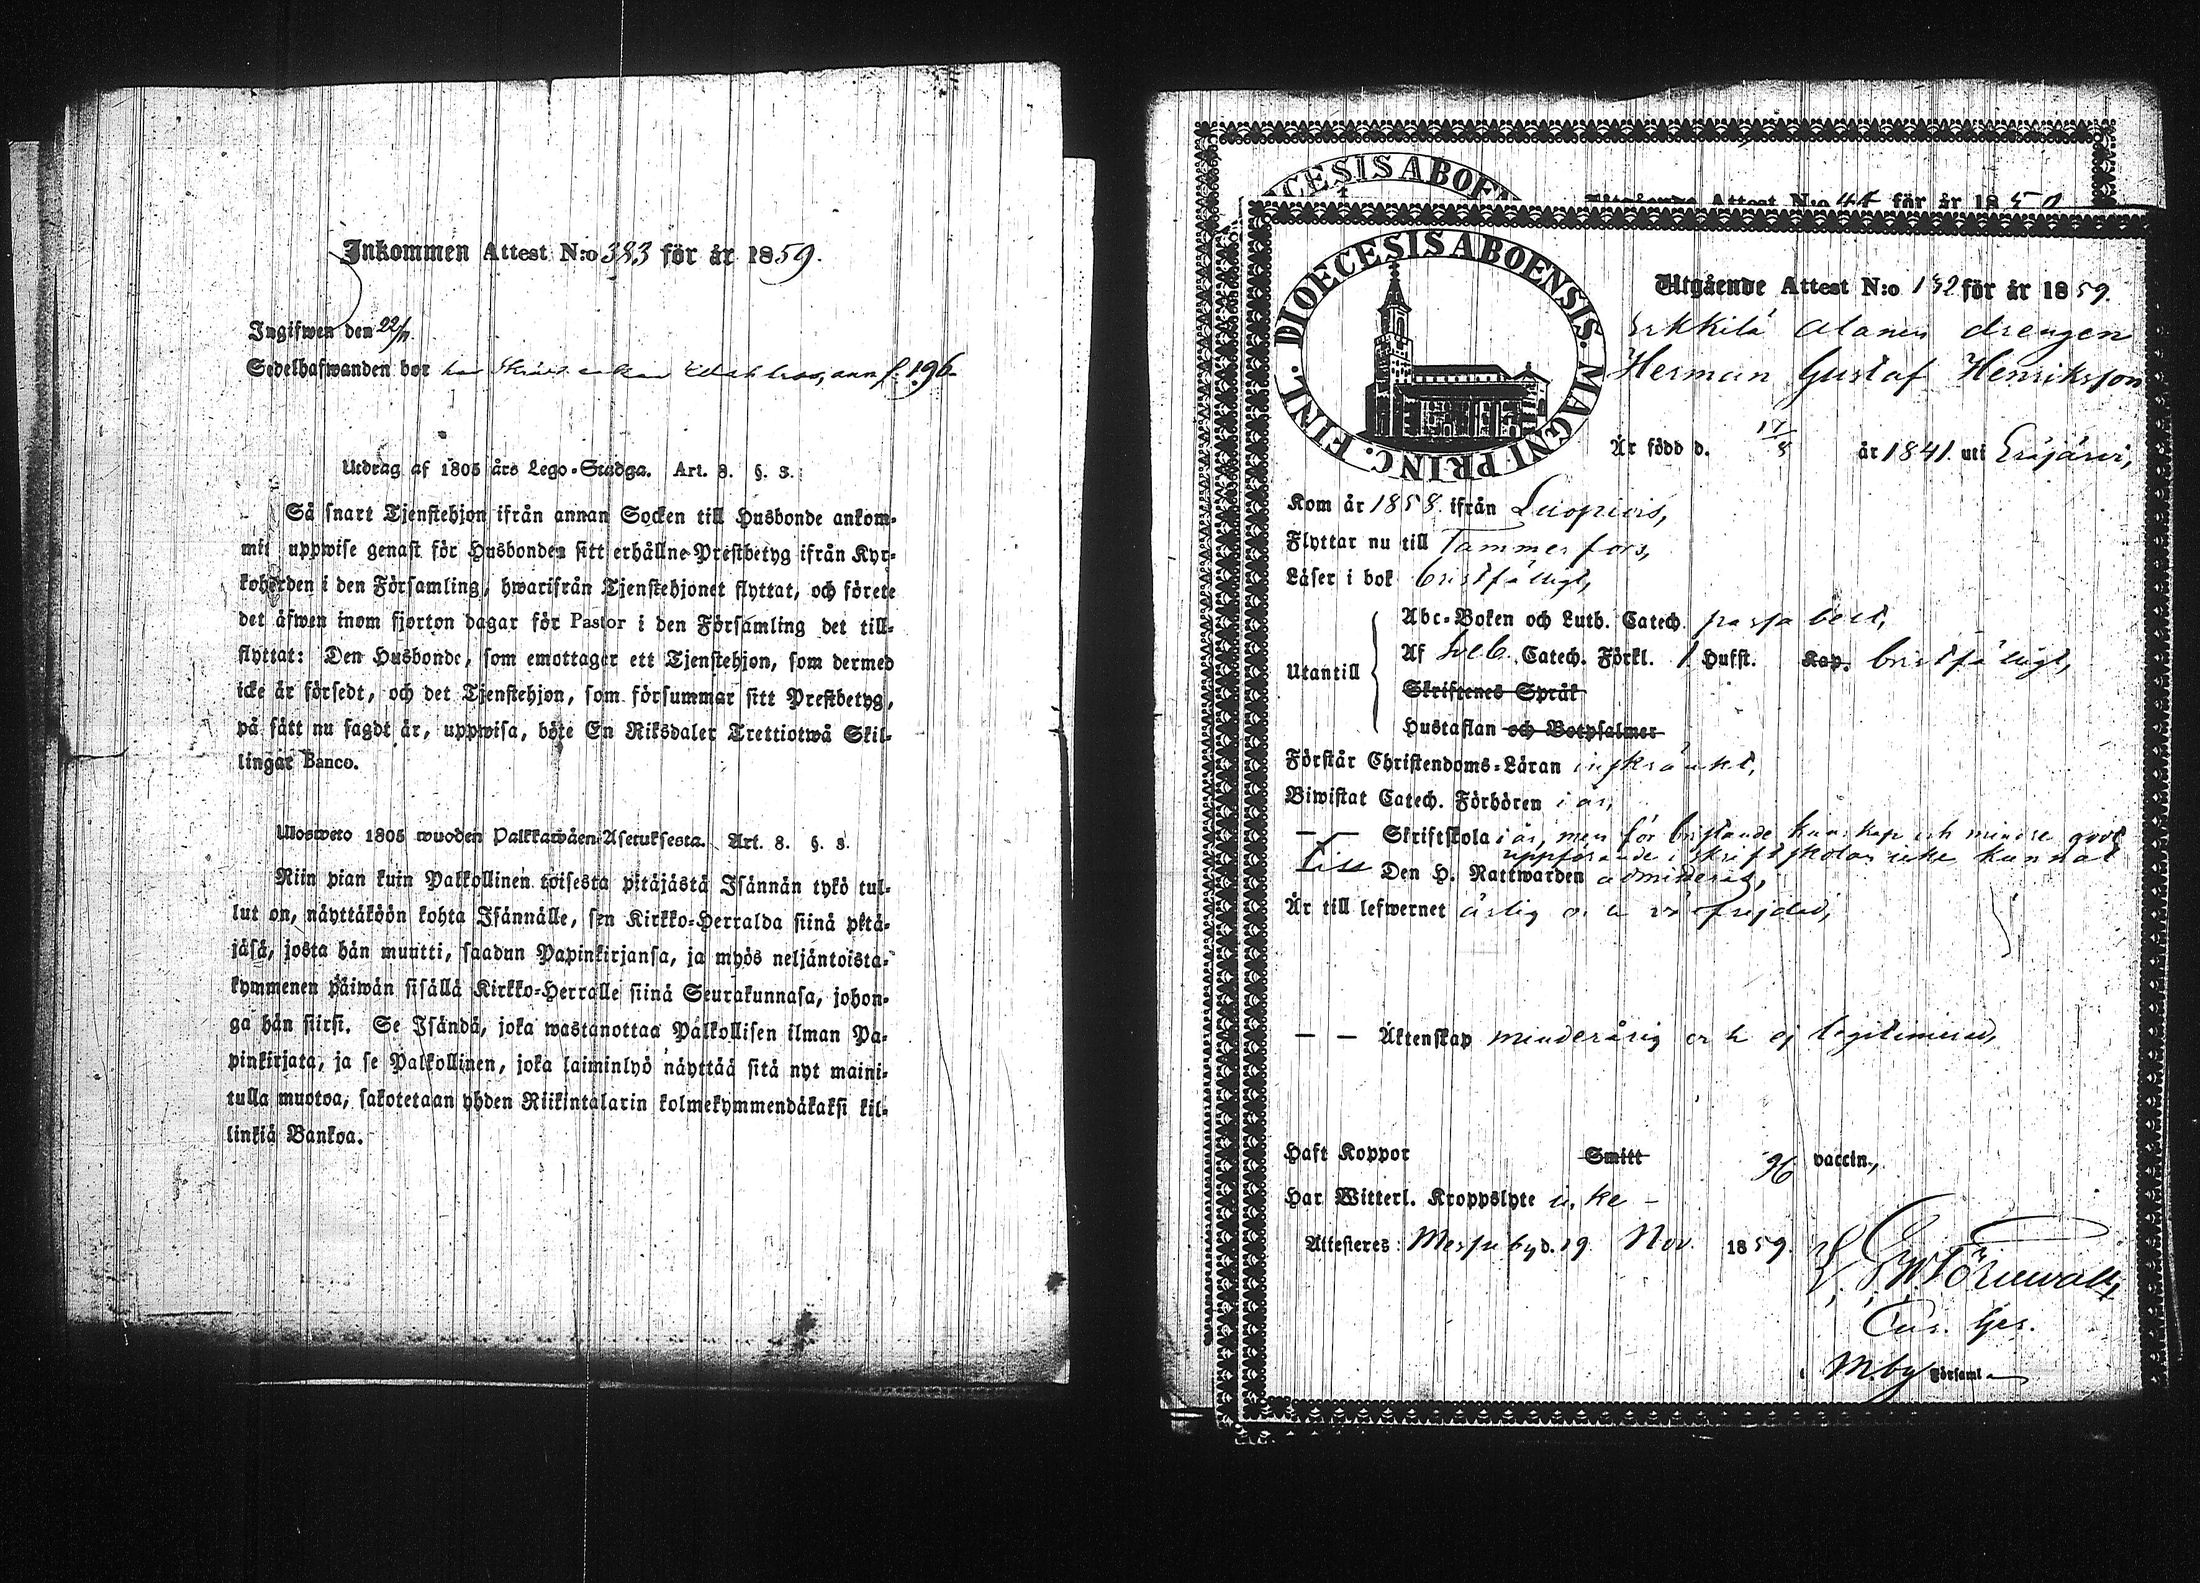 Inkommen Attest N:o 383 för år 1859.
Ingifwen den 22/11
Sedelhafwanden bor hos f. 196
Utdrag af 1805 års Lego-Stadga. Art. 8. §. 3.
Så snart Tjenstehjon ifrån annan Socken till Husbonde ankom-
mit uppwise genast för Husbonden sitt erhållne Prestbetyg ifrån Kyr-
koherden i den Församling, hwarifrån Tjenstehjonet flyttat, och förete
det äfwen inom fjorton dagar för Pastor i den Församling det till-
flyttat: Den Husbonde, som emottager ett Tjenstehjon, som dermed
icke är försedt, och det Tjenstehjon, som försummar sitt Prestbetyg,
på sätt nu sagdt är, uppwisa, böte En Riksdaler Trettiotwå Skil-
lingar Banco.
Ulosweto 1805 wuoden Palkkawäen Asetuksesta. Art. 8. §. 3.
Niin pian kuin Palkollinen toisesta pitäjästä Isännän tykö tul-
lut on, näyttäköön kohta Isännälle, sen Kirkko-Herralda siinä pitä-
jäsä, josta hän muutti, saadun Papinkirjansa, ja myös neljäntoista-
kymmenen päiwän sisällä Kirkko-Herralle siinä Seurakunnasa, johon-
ga hän siirsi. Se Isändä, joka wastanottaa Palkollisen ilman Pa-
pinkirjata, ja se Palkollinen, joka laiminlyö näyttää sitä nyt maini-
tulla muotoa, sakotetaan yhden Riikintalarin kolmekymmendäkaksi kil-
linkiä Bankoa.
CESIS ABOE
Utgående Attest N:o 44 för år 1850
DIOECESIS ABOENSIS. MAGNI PRINC. FINL.
Utgående Attest N:o 132 för år 1859.
Erkkilä Alanen drengen
Herman Gustaf Henriksson
Är född d. 17/8 år 1841. uti Eräjärvi,
Kom år 1858 ifrån Luopiois,
Flyttar nu till Tammerfors,
Läser i bok bristfälligt,
Utantill
Abc-Boken och Luth. Catech. passabelt,
Af Sveb. Catech. Förkl. 1 Hufst. Kap. bristfälligt,
Skriftenes Språk
Hustaflan och Botpsalmer
Förstår Christendoms-Läran inskränkt,
Biwistat Catech. Förhören i år,
— — Skriftskola i år, men för bristande kunskap och mindre godt
uppförande i skriftskolan icke kunnat
till Den H. Nattwarden admitteras,
Är till lefwernet ärlig och väl frejdad,
— — Äktenskap minderårig och ej legitimerad,
Haft Koppor Smitt vaccin.,
Har Witterl. Kroppslyte icke —
Attesteres: Messuby d. 19 Nov. 1859.
Cur. Ger.
i M:by Församl